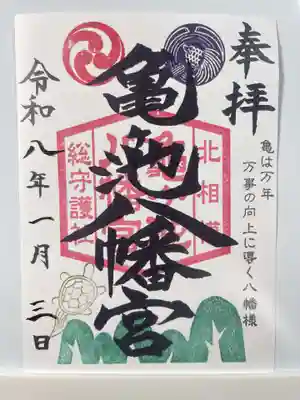 奉拝
亀は万年
万事の向上に導く八幡様
北相模
亀池八幡宮
総守護社
令和八年一月三日